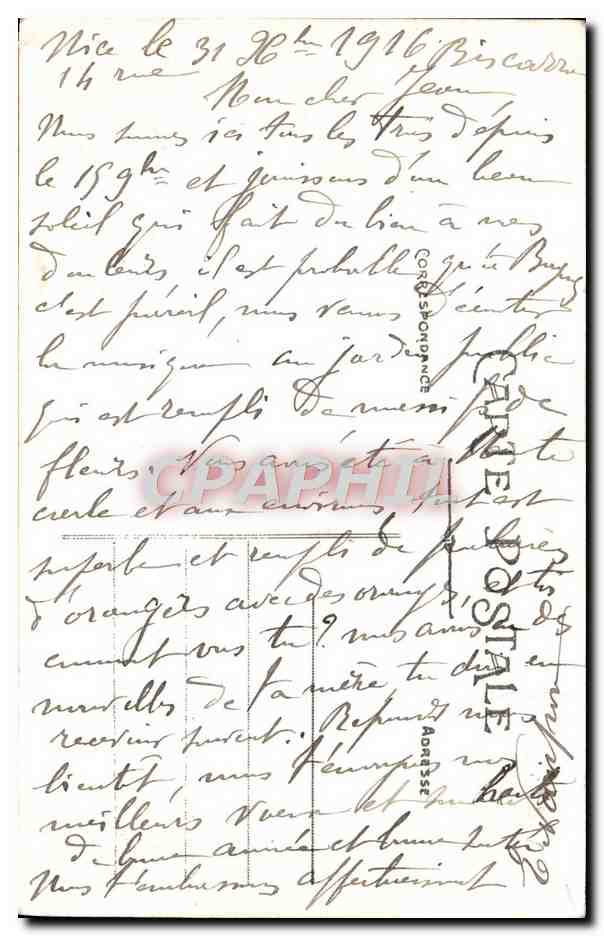 Nice le 31 Xbre 1916. Biscarra
14 rue
Mon cher Jean,
Nous sommes ici tous les trois dépuis
le 15 9bre et jouissons d'un beau
soleil qui fait du bien à mes
douleurs il est probable qu'à
c'est pareil, nous venons d'écouter
la musique au jardin public
qui est rempli de massifs de
fleurs. Nous avons été à Monte
Carle et aux environs, tout est
superbe et rempli de
d'orangers avec des oranges,
comment vas tu? nous avons des
nouvelles de ta mère tu dois en
recevoir souvent. Reponds nous
bientôt, nous t'envoyons nos
meilleurs voeux et souhaits
de bonne année et bonne santé
Nous t'embrassons affectueusement
CORRESPONDANCE
CARTE POSTALE
ADRESSE
CPAPHIL